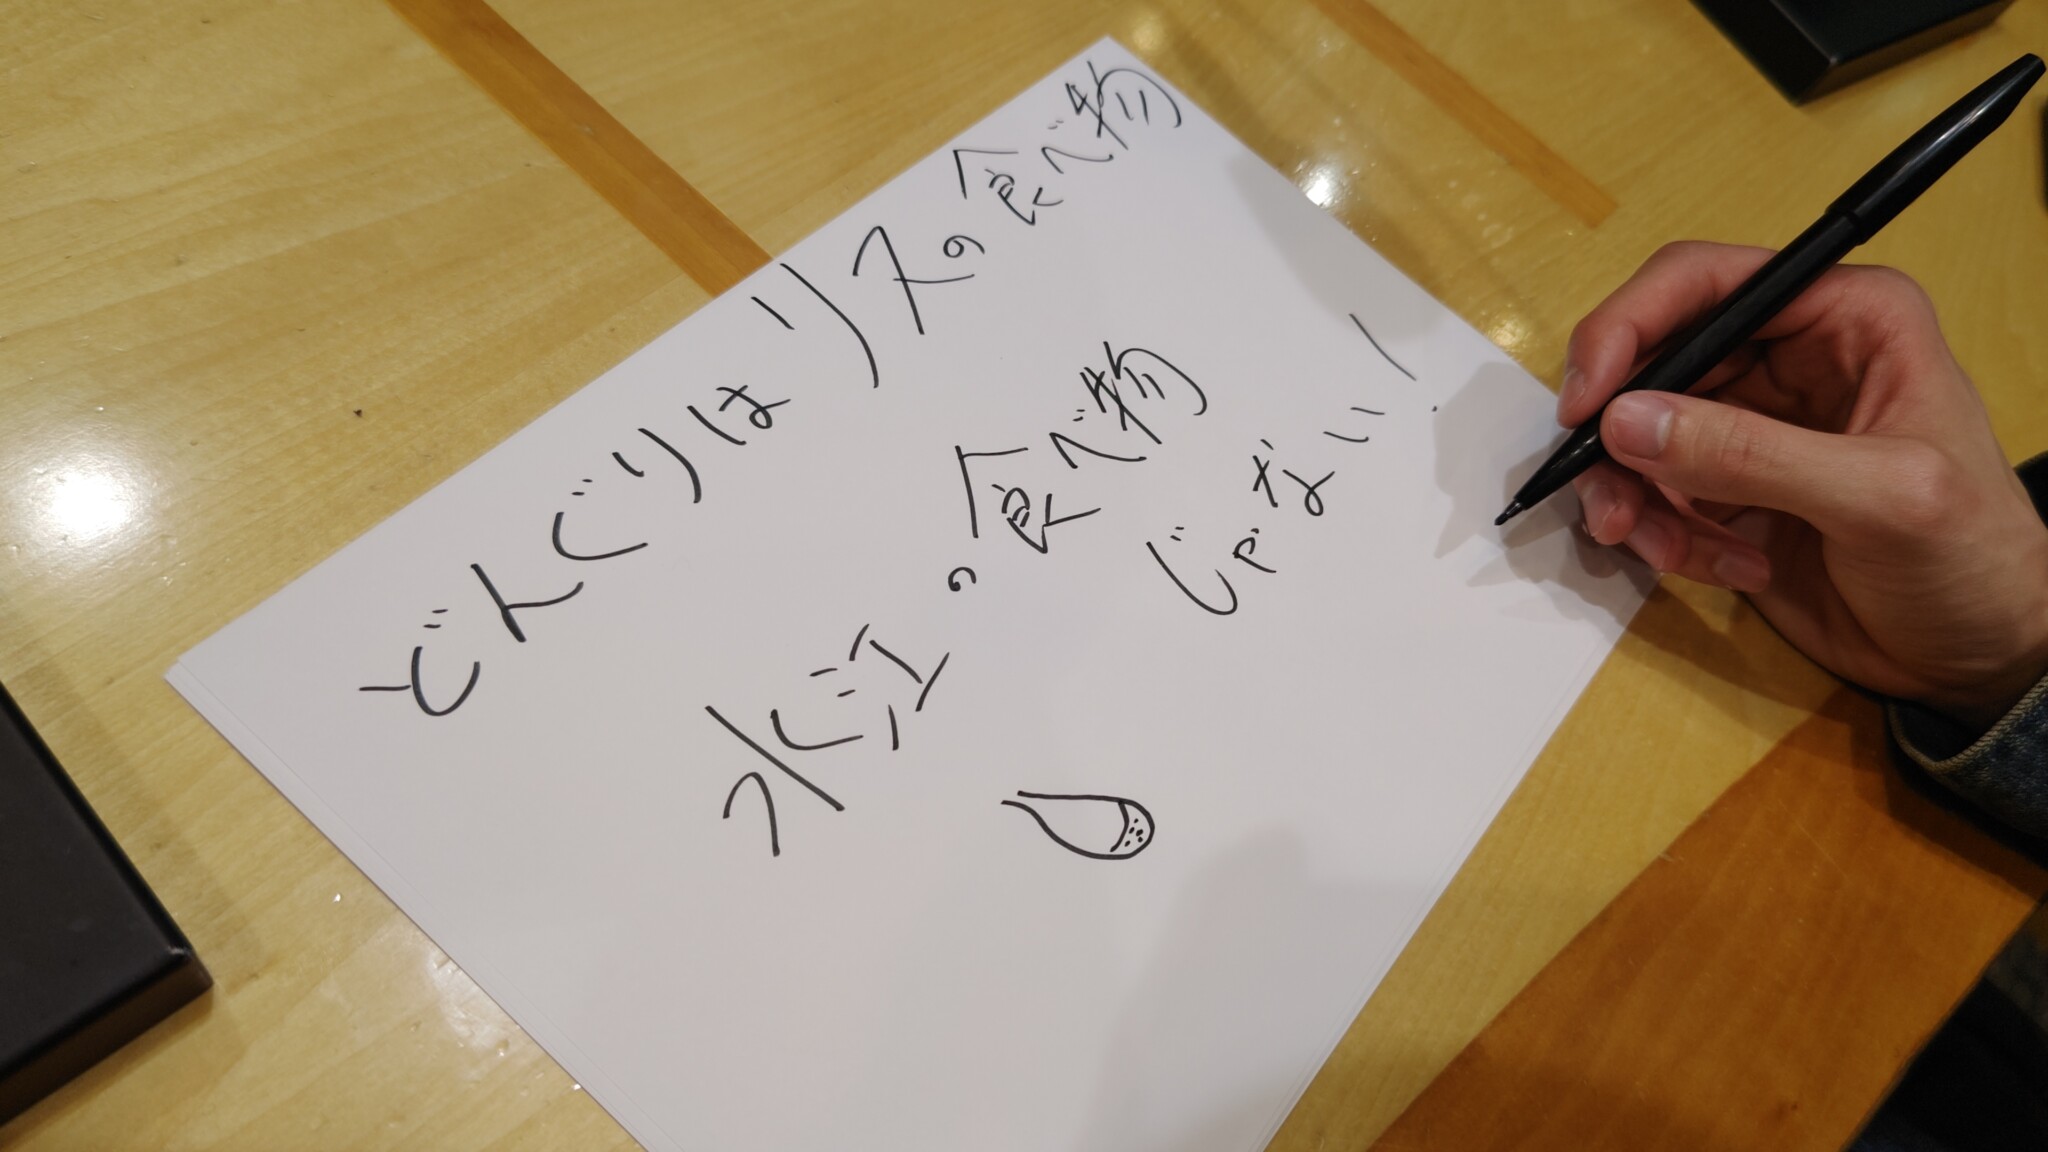 どんぐりはリスの食べ物
の食べ物
じゃない!